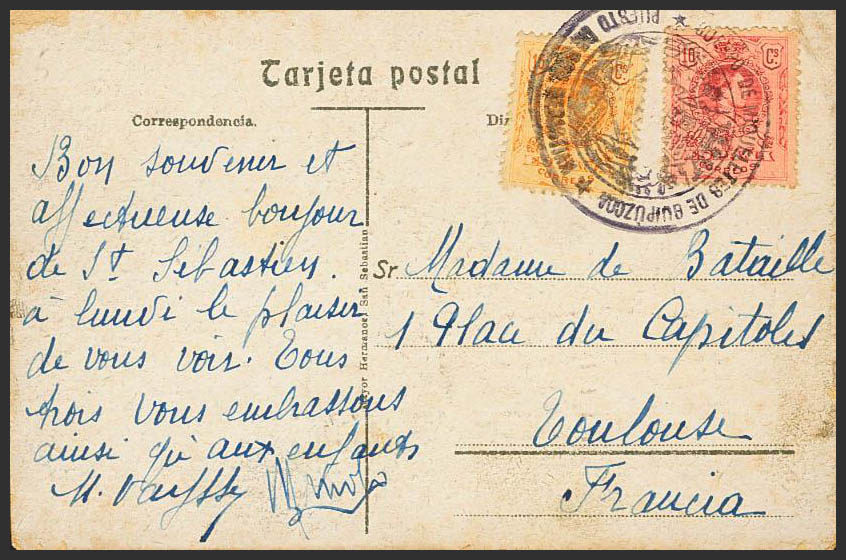 Tarjeta postal
Correspondencia.
Bon souvenir et
affectueuse bonjour
de St Sébastien.
à lundi le plaisir
de vous voir. Tous
trois vous embrassons
ainsi qu'aux enfants
M.
Hermanos, San Sebastian
PUESTO
DE GUIPUZCOA
10 Cs
Sr Madame de Bataille
1 Place du Capitole
Toulouse
Francia